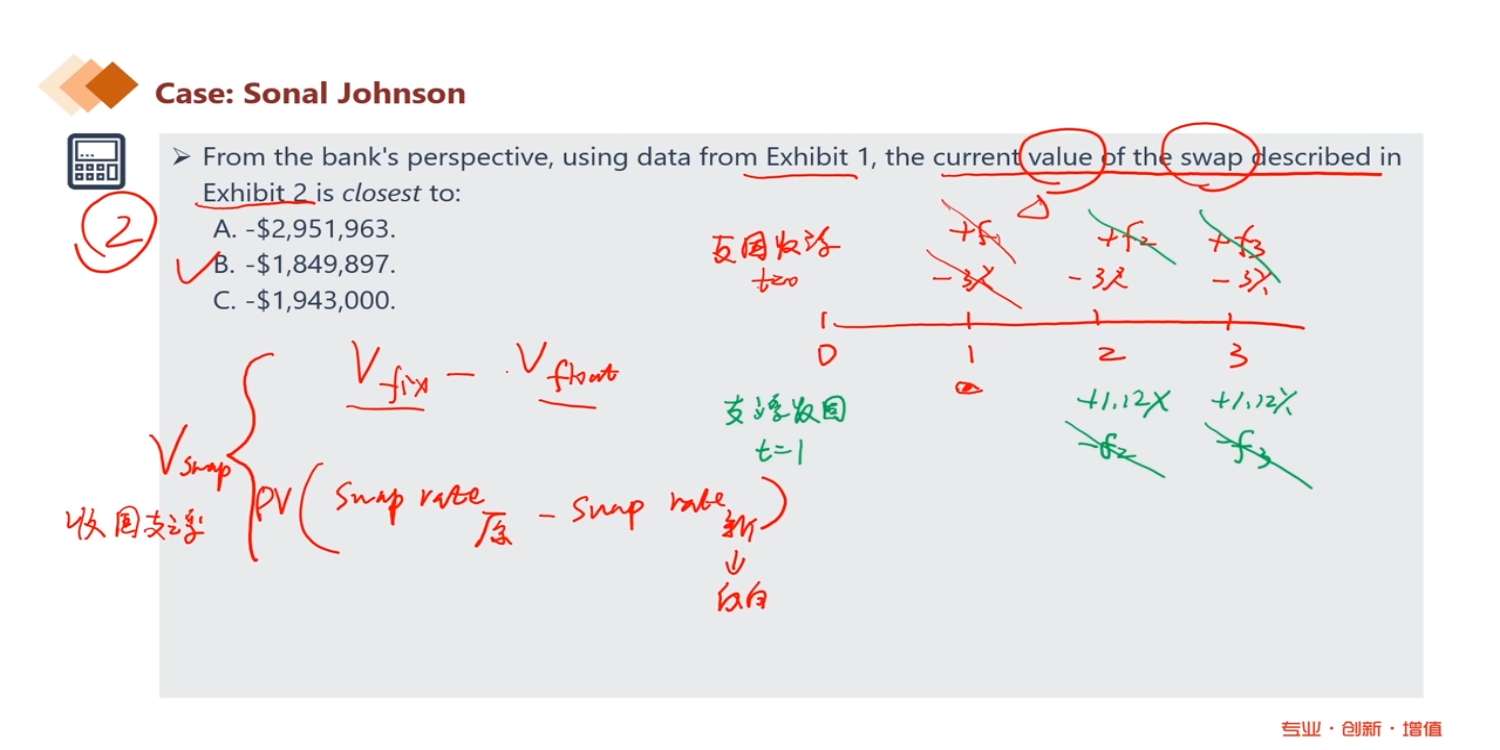 Case: Sonal Johnson
➤ From the bank's perspective, using data from Exhibit 1, the current value of the swap described in
Exhibit 2 is closest to:
A. -$2,951,963.
B. -$1,849,897.
C. -$1,943,000.
2
支固收浮
t=0
+f1 +f2 +f3
-3% -3% -3%
0 1 2 3
支浮收固
t=1
+1.12% +1.12%
-f2 -f3
Vswap
收固支浮
Vfix - Vfloat
PV(Swap rate原 - Swap rate新)
↓
反向
专业·创新·增值